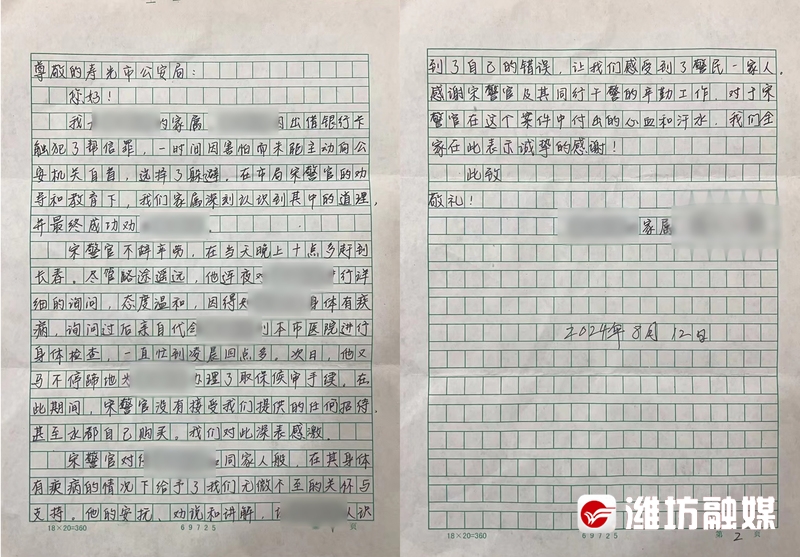 尊敬的寿光市公安局：
您好！
我 的家属 因出借银行卡
触犯了帮信罪，一时间因害怕而未能主动向公
安机关自首，选择了躲避。在市局宋警官的劝
导和教育下，我们家属深刻认识到其中的道理，
并最终成功劝
宋警官不辞辛劳，在当天晚上十点多赶到
长春。尽管路途遥远，他连夜对 行详
细的询问，态度温和，因得知 身体有疾
病，询问过后亲自代 到本市医院进行
身体检查，一直忙到凌晨四点多。次日，他又
马不停蹄地为 办理了取保候审手续，在
此期间，宋警官没有接受我们提供的任何招待，
甚至水都自己购买。我们对此深表感激。
宋警官对待 同家人般，在其身体
有疾病的情况下给予了我们无微不至的关怀与
支持。他的安抚、劝说和讲解， 人识
18×20=360 69725 第 1 页
到了自己的错误，让我们感受到了警民一家人。
感谢宋警官及其同行干警的辛勤工作，对于宋
警官在这个案件中付出的心血和汗水，我们全
家在此表示诚挚的感谢！
此致
敬礼！
家属
2024年8月12日
18×20=360 69725 第 2 页
潍坊融媒